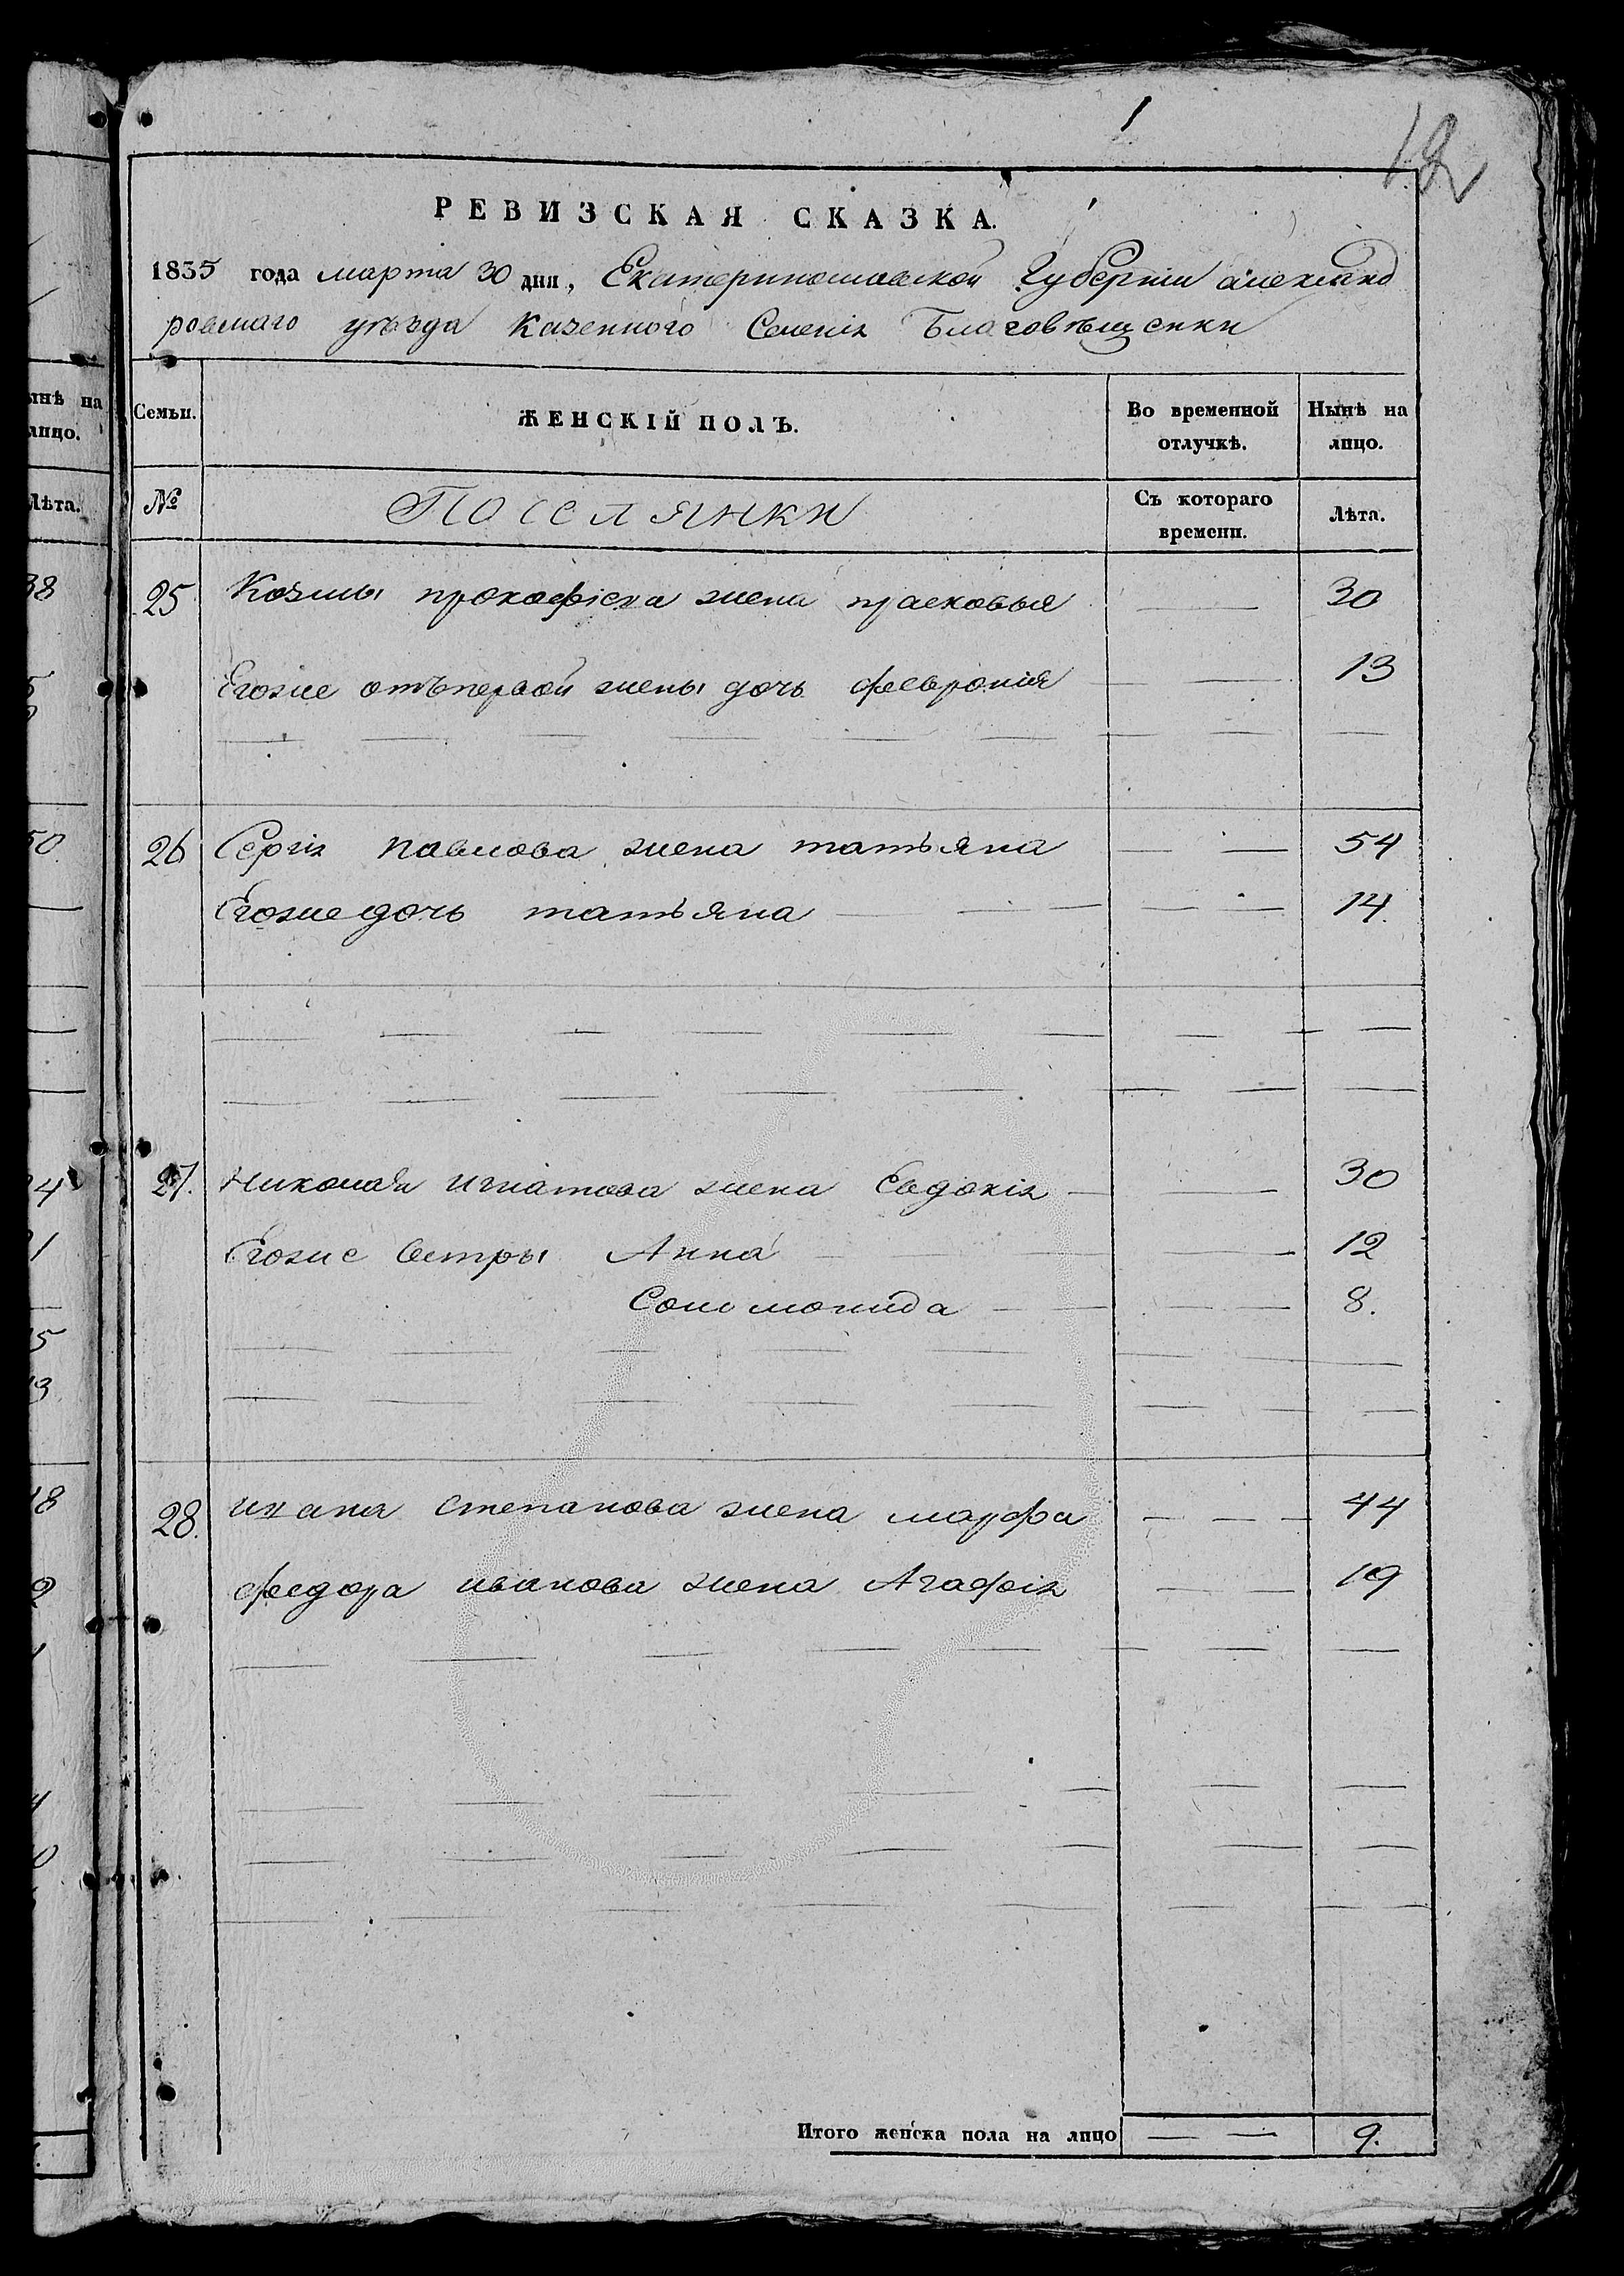 1
12
РЕВИЗСКАЯ СКАЗКА.
1835 года марта 30 дня, Екатеринославской Губерніи Александ
ровскаго уѣзда Казенного Селенія Благовѣщенки
ынѣ на
лицо.
Лѣта.
Семьи.
ЖЕНСКІЙ ПОЛЪ.
Во временной
отлучкѣ.
Нынѣ на
лицо.
№
Поселянки
Съ котораго
времени.
Лѣта.
25 Козмы прокофіева жена прасковья 30
Егоже отъпервой жены дочь февронія 13
26 Сергія павлова жена татьяна 54
Егоже дочь татьяна 14.
27. Николая игнатова жена Евдокія 30
Егоже Сестры Анна 12
Соломонида 8.
28. ивана степанова жена марфа 44
федора иванова жена Агафія 19
Итого женска пола на лицо 9.